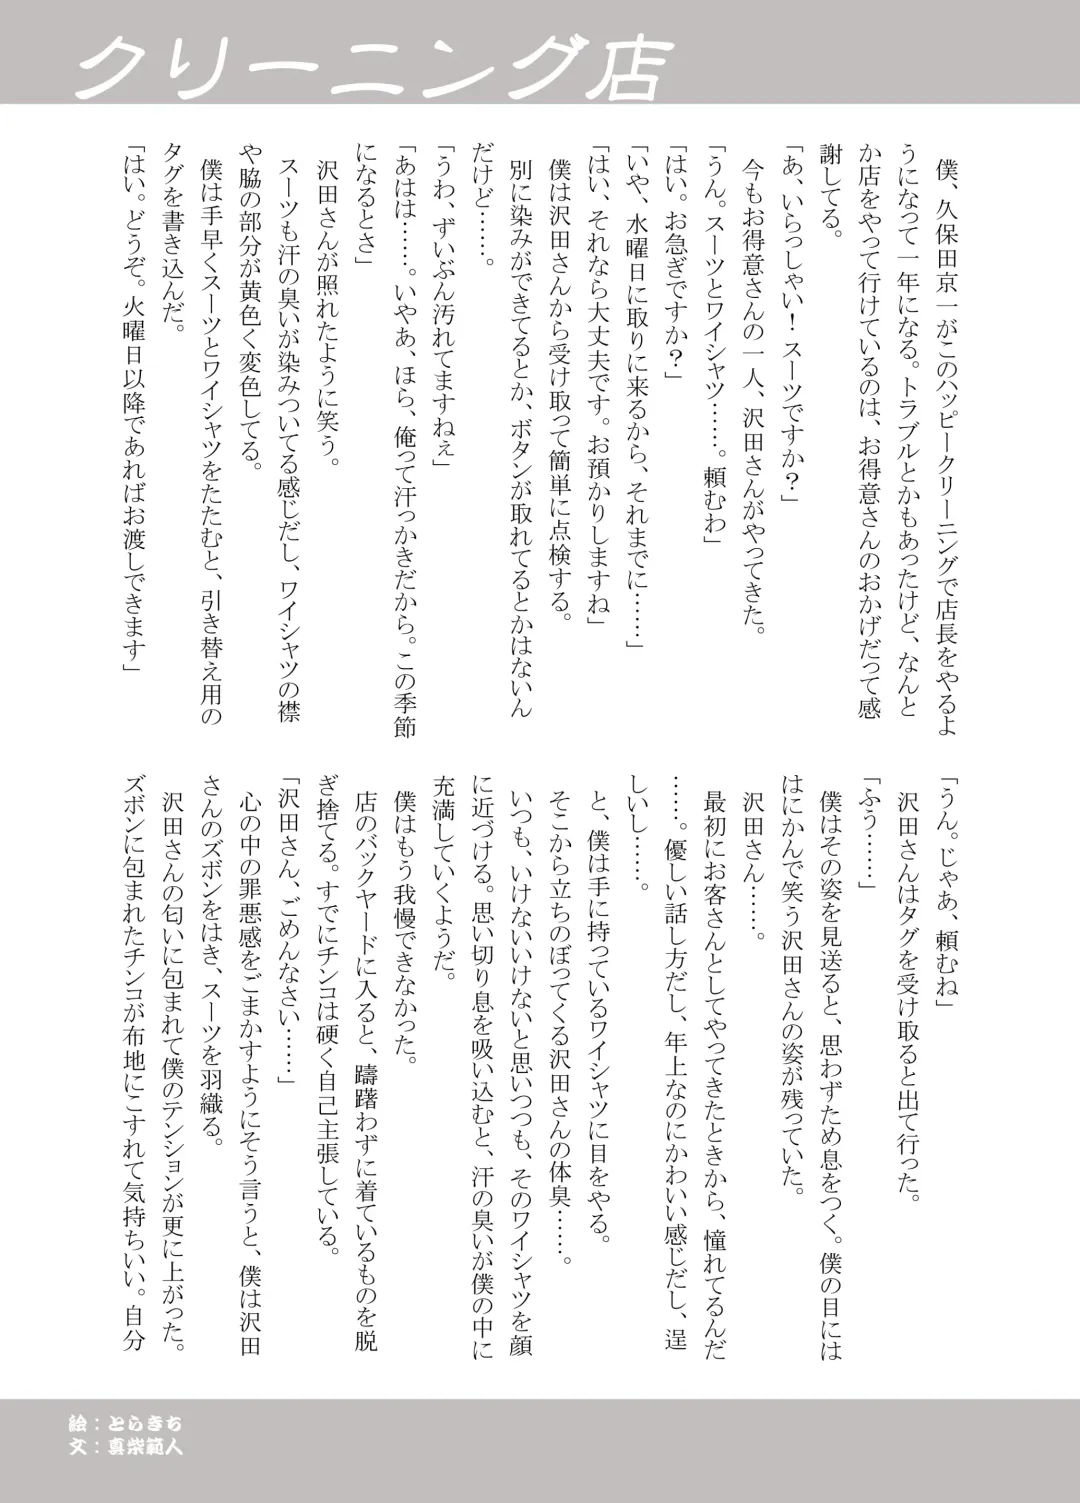 クリーニング店
僕、久保田京一がこのハッピークリーニングで店長をやるよ
うになって一年になる。トラブルとかもあったけど、なんと
か店をやって行けているのは、お得意さんのおかげだって感
謝してる。
「あ、いらっしゃい！スーツですか？」
今もお得意さんの一人、沢田さんがやってきた。
「うん。スーツとワイシャツ……。頼むわ」
「はい。お急ぎですか？」
「いや、水曜日に取りに来るから、それまでに……」
「はい、それなら大丈夫です。お預かりしますね」
僕は沢田さんから受け取って簡単に点検する。
別に染みができてるとか、ボタンが取れてるとかはないん
だけど……。
「うわ、ずいぶん汚れてますねぇ」
「あはは……。いやあ、ほら、俺って汗っかきだから。この季節
になるとさ」
沢田さんが照れたように笑う。
スーツも汗の臭いが染みついてる感じだし、ワイシャツの襟
や脇の部分が黄色く変色してる。
僕は手早くスーツとワイシャツをたたむと、引き替え用の
タグを書き込んだ。
「はい。どうぞ。火曜日以降であればお渡しできます」
「うん。じゃあ、頼むね」
沢田さんはタグを受け取ると出て行った。
「ふう……」
僕はその姿を見送ると、思わずため息をつく。僕の目には
はにかんで笑う沢田さんの姿が残っていた。
沢田さん……。
最初にお客さんとしてやってきたときから、憧れてるんだ
……。優しい話し方だし、年上なのにかわいい感じだし、逞
しいし……。
と、僕は手に持っているワイシャツに目をやる。
そこから立ちのぼってくる沢田さんの体臭……。
いつも、いけないいけないと思いつつも、そのワイシャツを顔
に近づける。思い切り息を吸い込むと、汗の臭いが僕の中に
充満していくようだ。
僕はもう我慢できなかった。
店のバックヤードに入ると、躊躇わずに着ているものを脱
ぎ捨てる。すでにチンコは硬く自己主張している。
「沢田さん、ごめんなさい……」
心の中の罪悪感をごまかすようにそう言うと、僕は沢田
さんのズボンをはき、スーツを羽織る。
沢田さんの匂いに包まれて僕のテンションが更に上がった。
ズボンに包まれたチンコが布地にこすれて気持ちいい。自分
絵：とらきち
文：真柴範人